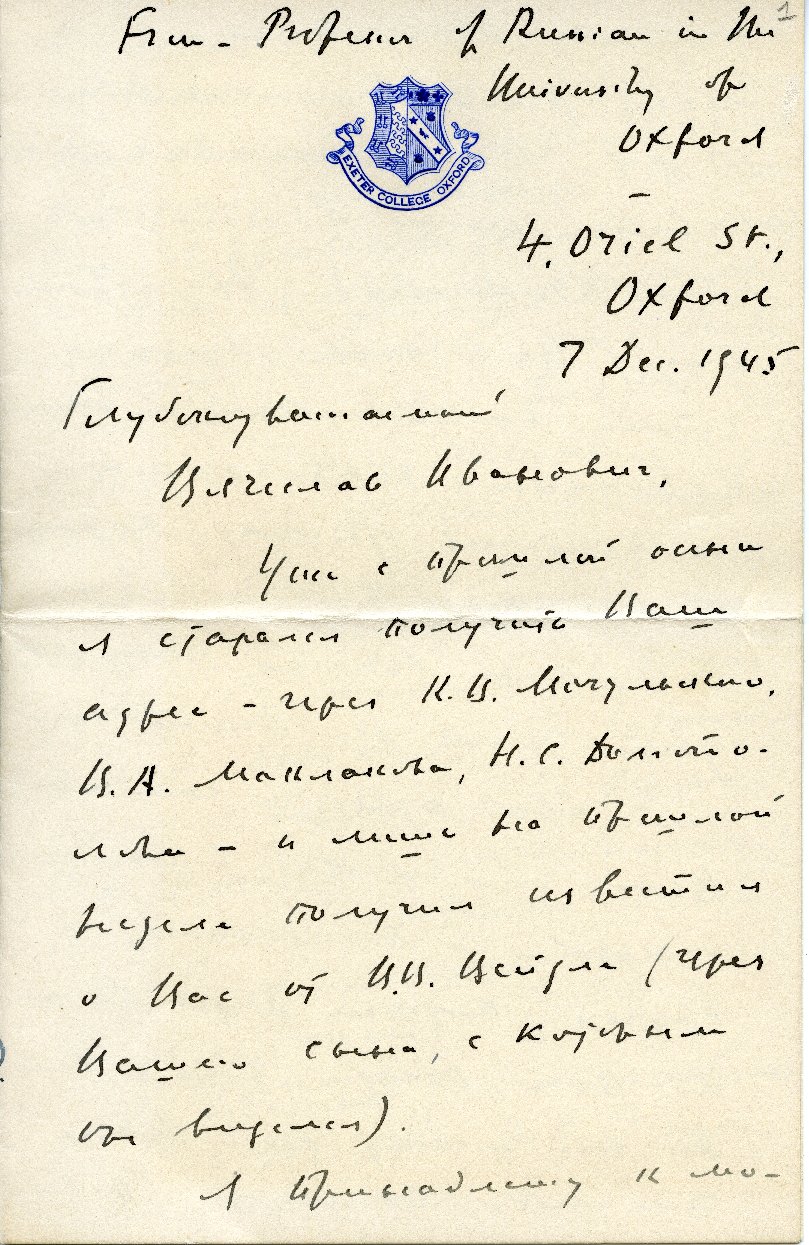 From - Professor of Russian in the
1
University of
Oxford
EXETER COLLEGE OXFORD
4, Oriel St.,
Oxford
7 Dec. 1945
Глубокоуважаемый
Вячеслав Иванович,
Уже с прошлой осени
я старался получить Ваш
адрес - через К.В. Мочульского,
В.А. Маклакова, Н.С.
- и лишь на прошлой
неделе получил известия
о Вас от В.В. Вейдле (через
Вашего сына, с которым
он виделся).
Я принадлежу к мо-